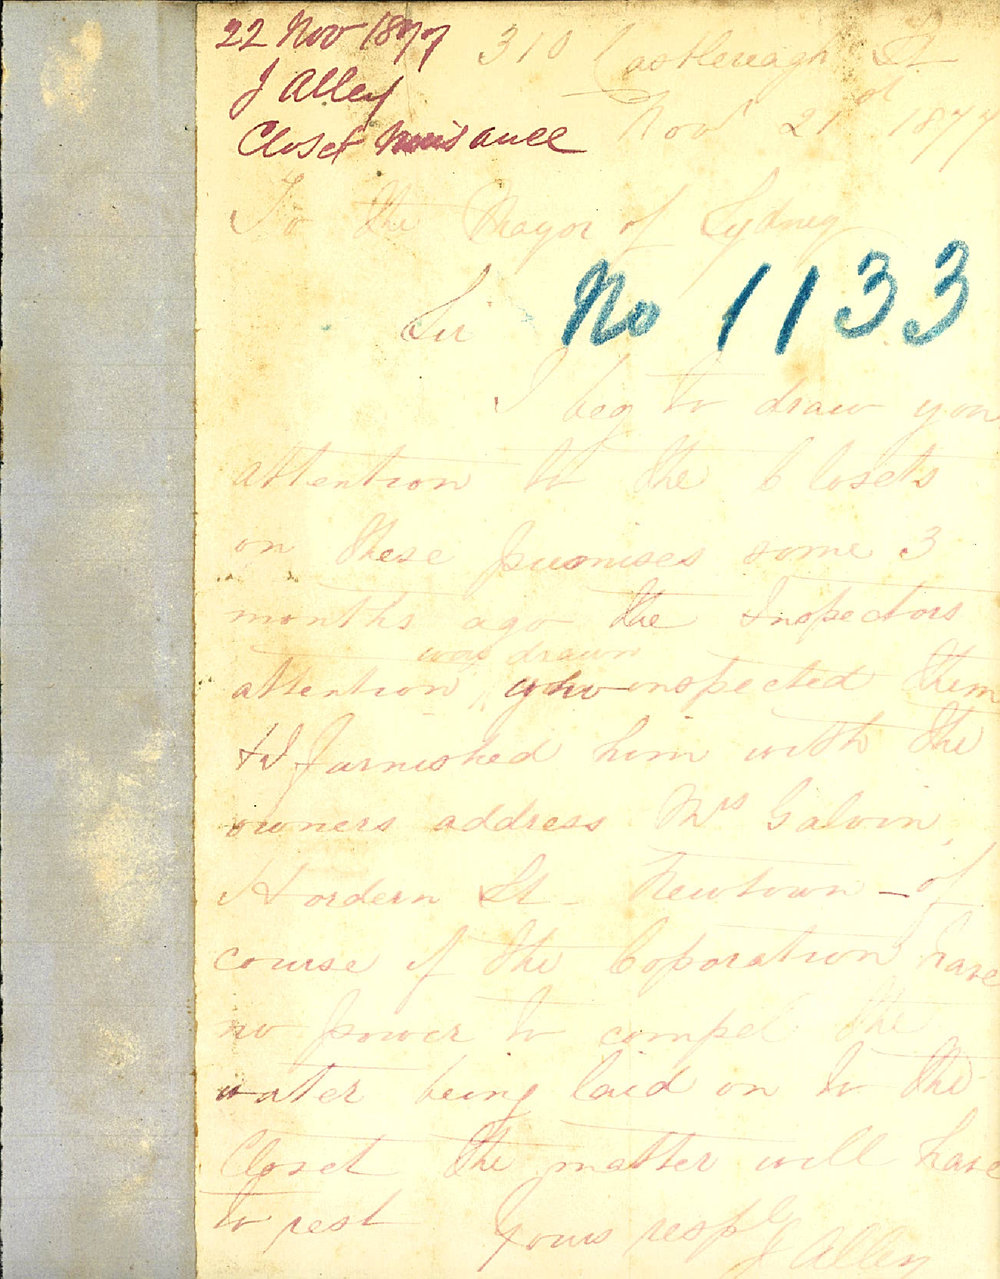 22 Nov 1877
J Alley
Closet Nuisance
310 Castlereagh St
Novr 21st 1877
To the Mayor of Sydney
No 1133
Sir
I beg to draw you
attention to the Closets
on these premises some 3
months ago the Inspectors
was drawn
attention who inspected them
& I furnished him with the
owners address Mrs Galvin,
Hordern St Newtown — of
course if the Coporation have
no power to compel the
water being laid on to the
Closet the matter will have
to rest
Yours resply
J Alley